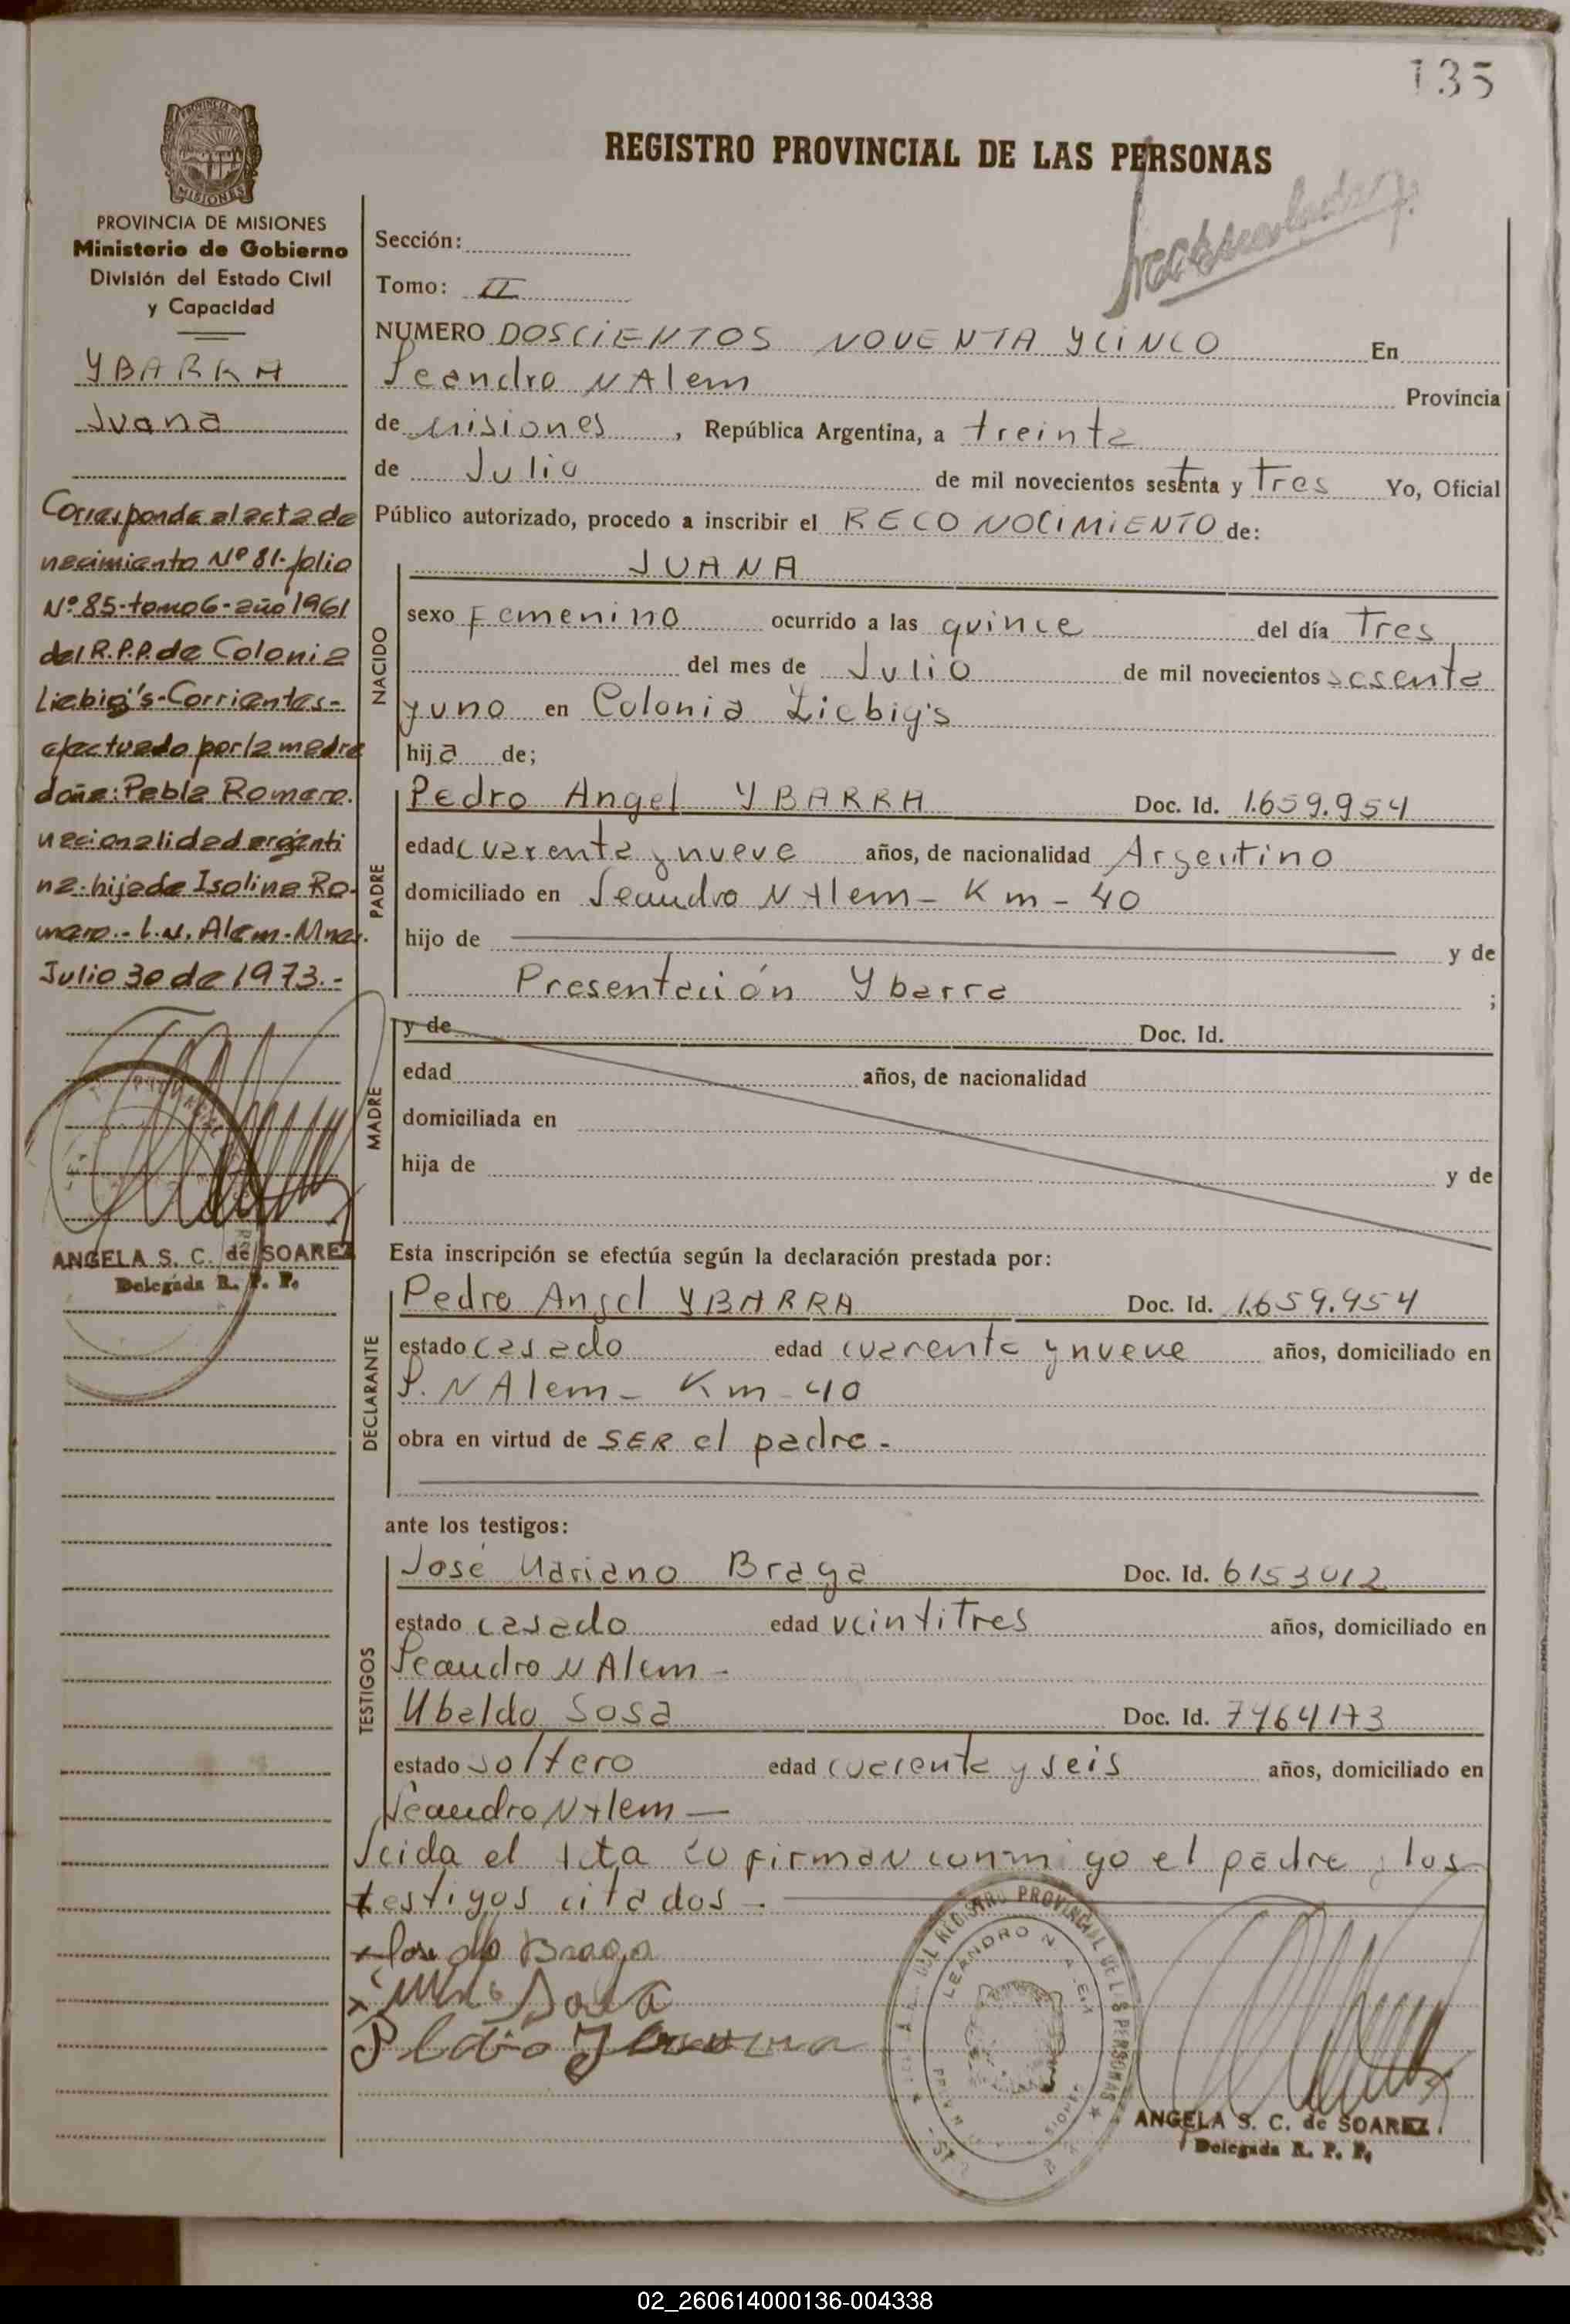 135
REGISTRO PROVINCIAL DE LAS PERSONAS
PROVINCIA DE MISIONES
Ministerio de Gobierno
División del Estado Civil
y Capacidad
YBARRA
Juana
Corresponde al acta de
nacimiento Nº 81-folio
Nº 85-tomo 6-año 1961
del R.P.P. de Colonia
Liebig's-Corrientes-
efectuado por la madre
doña: Pabla Romero.
nacionalidad argenti
na-hija de Isolina Ro-
mero.- L.N. Alem-Mnes.
Julio 30 de 1973.-
ANGELA S. C. de SOAREZ
Delegada R. P. P.
Sección:
Tomo: II
NUMERO DOSCIENTOS NOVENTA Y CINCO En
Leandro N Alem Provincia
de Misiones, República Argentina, a treinta
de Julio de mil novecientos setenta y tres Yo, Oficial
Público autorizado, procedo a inscribir el RECONOCIMIENTO de:
NACIDO
JUANA
sexo Femenino ocurrido a las quince del día Tres
del mes de Julio de mil novecientos sesenta
y uno en Colonia Liebig's
hija de;
PADRE
Pedro Angel YBARRA Doc. Id. 1.659.954
edad cuarenta y nueve años, de nacionalidad Argentino
domiciliado en Leandro N Alem - Km - 40
hijo de y de
Presentación Ybarra ;
MADRE
y de Doc. Id.
edad años, de nacionalidad
domiciliada en
hija de y de
Esta inscripción se efectúa según la declaración prestada por:
DECLARANTE
Pedro Angel YBARRA Doc. Id. 1.659.954
estado casado edad cuarenta y nueve años, domiciliado en
L. N Alem - Km - 40
obra en virtud de SER el padre.-
ante los testigos:
TESTIGOS
José Mariano Braga Doc. Id. 6153012
estado casado edad veintitres años, domiciliado en
Leandro N Alem -
Ubaldo Sosa Doc. Id. 7464173
estado soltero edad cuarenta y seis años, domiciliado en
Leandro N Alem -
Leida el Acta la firman conmigo el padre y los
testigos citados -.
Braga
Sosa
DEL REGISTRO PROVINCIAL DE LAS PERSONAS
LEANDRO N. ALEM
ANGELA S. C. de SOAREZ
Delegada R. P. P.
02_260614000136-004338